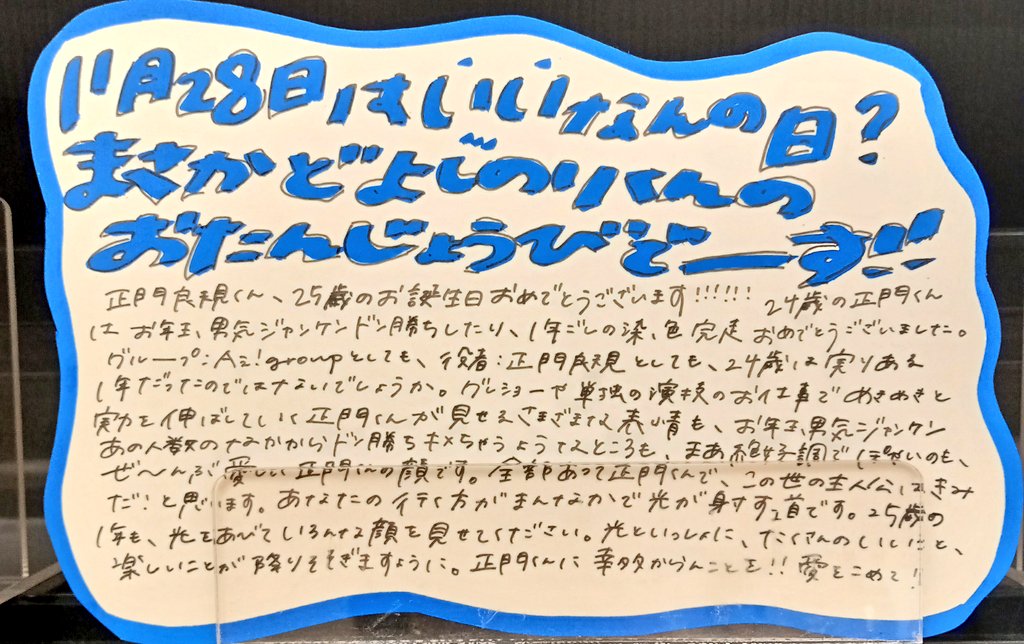 11月28日はいいなんの日?
まさかどよしのりくんの
おたんじょうびでーす!!
正門良規くん、25歳のお誕生日おめでとうございます!!!!!! 24歳の正門くん
は お年玉男気ジャンケンドン勝ちしたり、1年ごしの染色完走 おめでとうございました。
グループ:Aぇ!groupとしても、役者:正門良規としても、24歳は実りある
1年だったのではないでしょうか。グレショーや単独の演技のお仕事でめきめきと
実力を伸ばしていく正門くんが見せるさまざまな表情も、お年玉男気ジャンケン
あの人数のなかからドン勝ちキメちゃうようなところも、まあ絶好調で いのも、
ぜ〜んぶ愛しい正門くんの顔です。全部あって正門くんで、この世の主人公はきみ
だ!と思います。あなたの行く方がまんなかで光が射す道です。25歳の
1年も、光をあびているんな顔を見せてください。光といっしょに、たくさんのいいこと、
楽しいことが降りそそぎますように。正門くんに幸多からんことを!!愛をこめて!